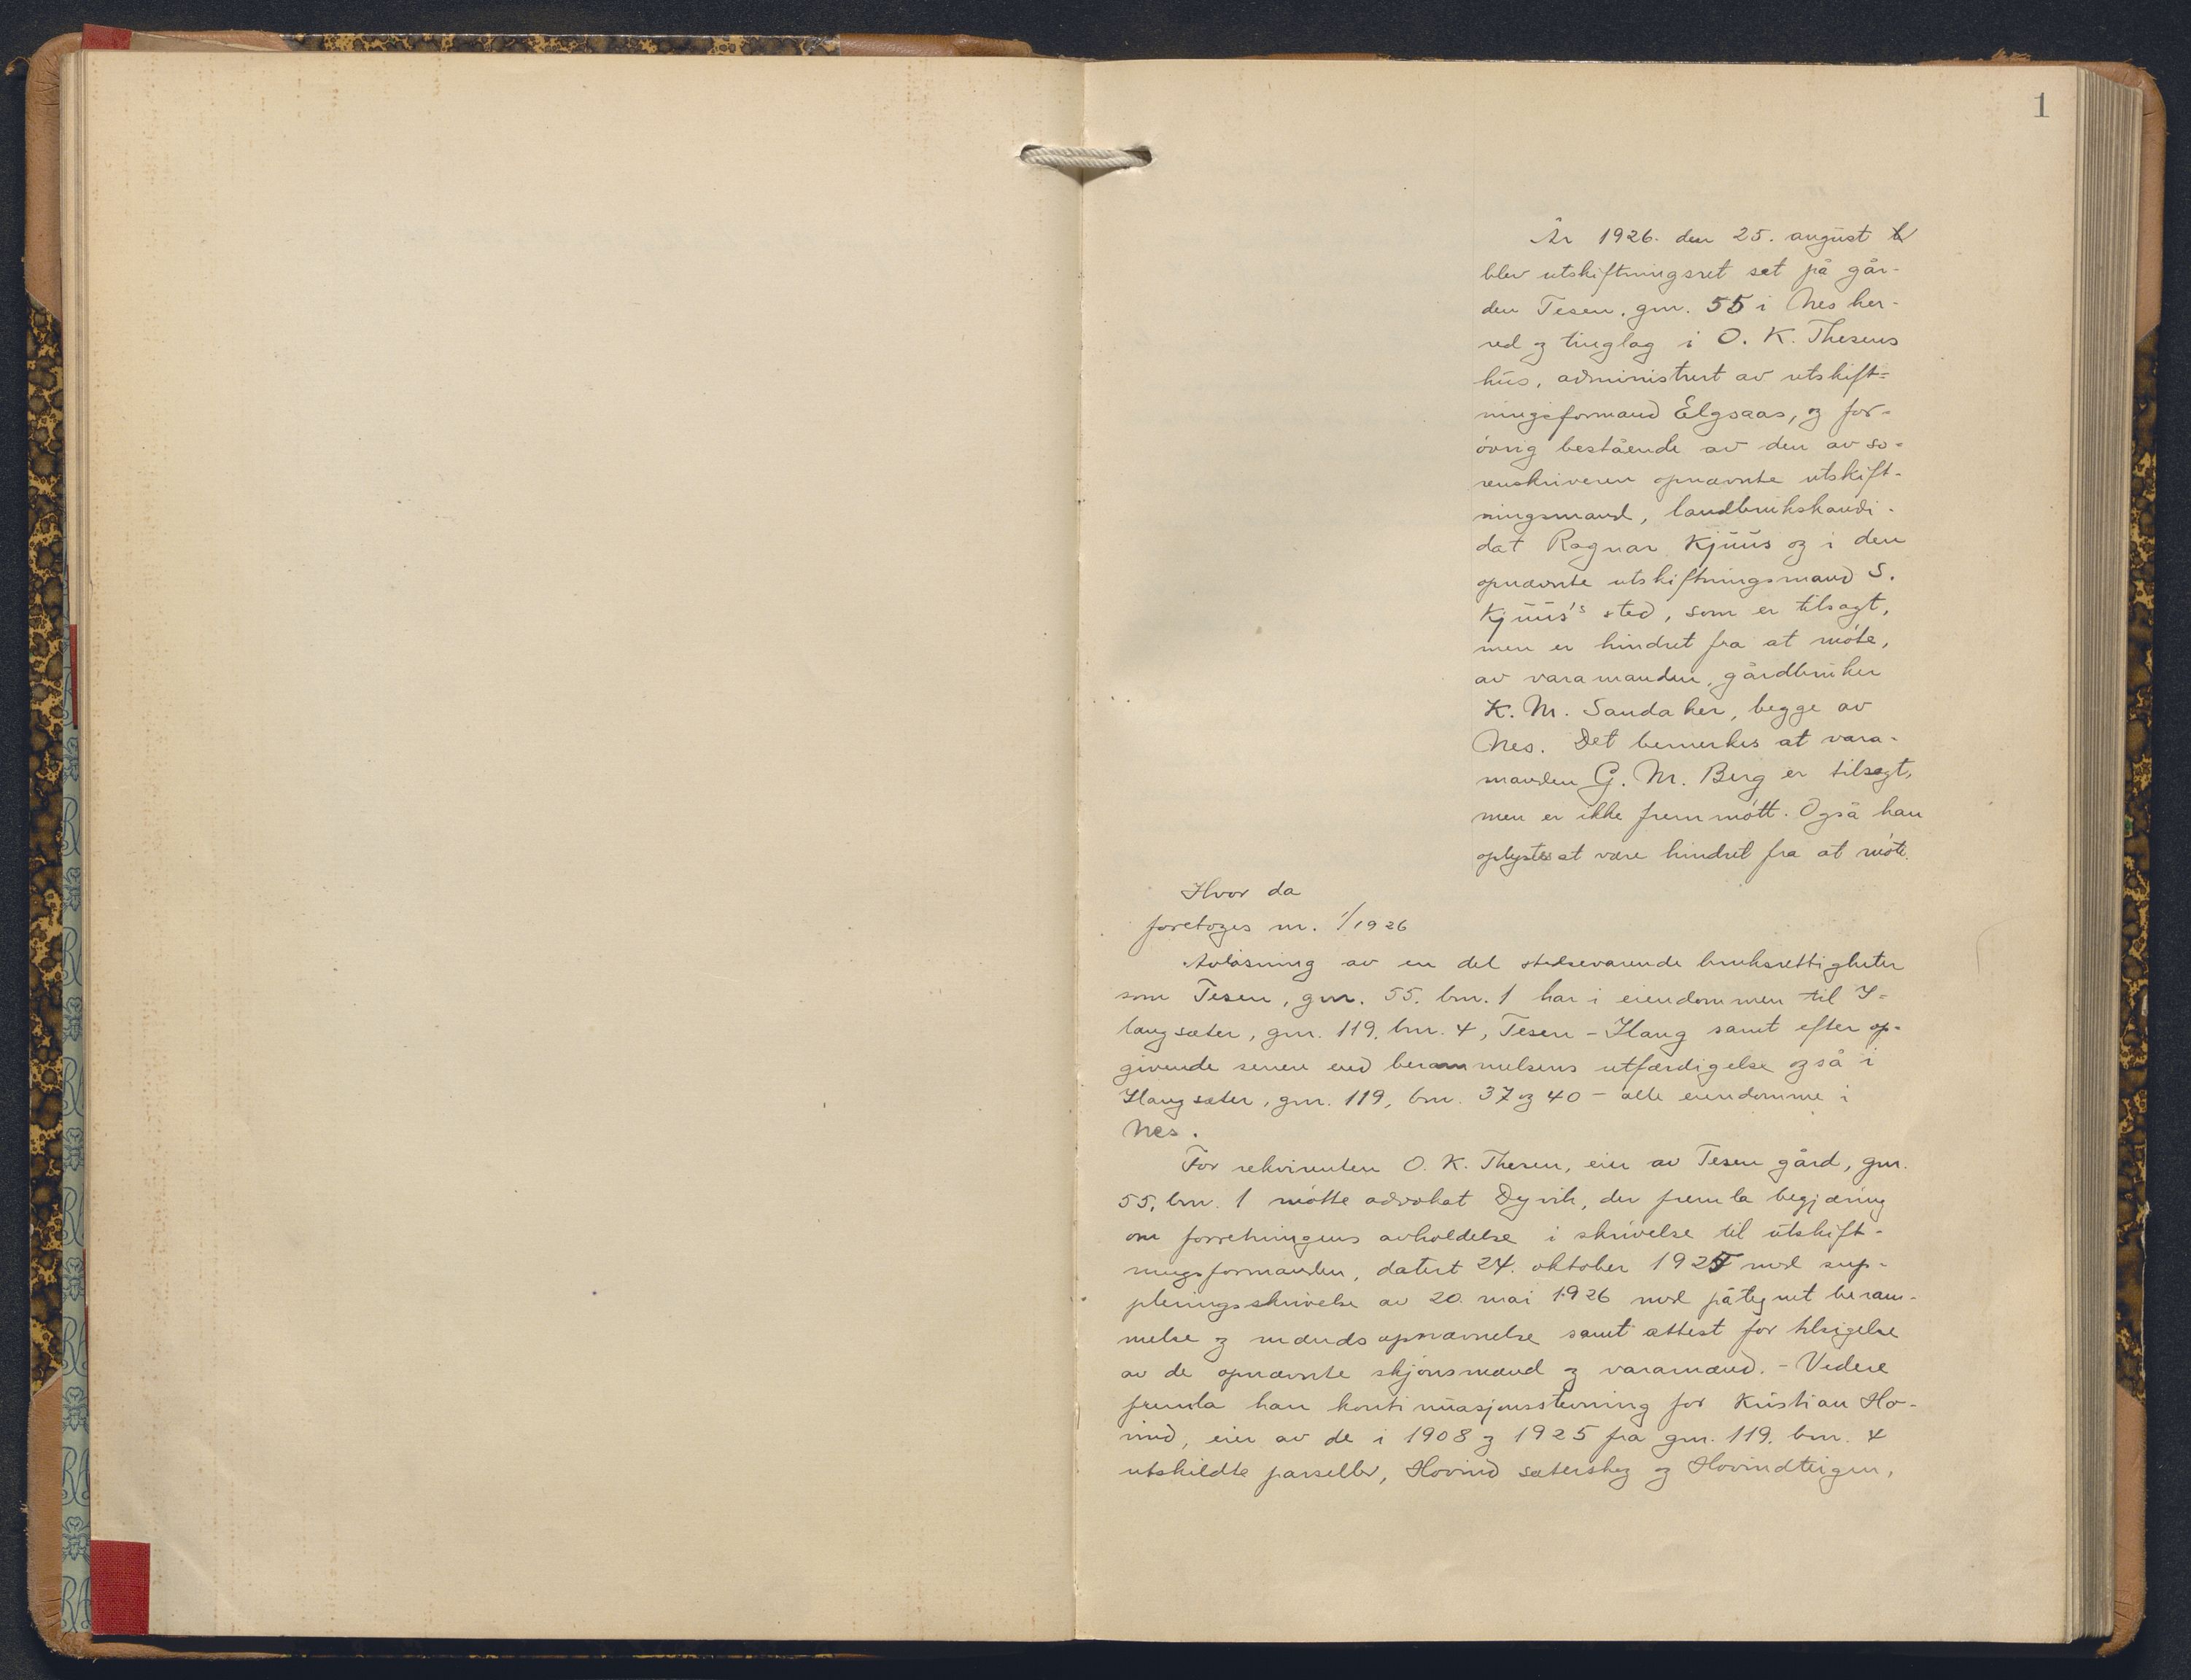 1
År 1926. den 25. august b
blev utskiftningsret sat på går-
den Tesen, gnr. 55 i Nes her-
red og tinglag i O. K. Thesens
hus, administrert av utskift-
ningsformand Elgsaas, og for-
övrig bestående av den av so-
renskriveren opnævnte utskift-
ningsmand, landbrukskandi-
dat Ragnar Kjüüs og i den
opnævnte utskiftningsmand S.
Kjüüs's sted, som er tilsagt,
men er hindret fra at möte,
av varamanden, gårdbruker
K. M. Sandaker, begge av
Nes. Det bemerkes at vara-
manden G. M. Berg er tilsagt,
men er ikke fremmött. Også han
oplystes at være hindret fra at möte.
Hvor da
foretoges nr. 1/1926
Avlösning av en del stedsevarende bruksrettigheter
som Tesen, gnr. 55. bnr. 1 har i eiendommen til H-
laugsæter, gnr. 119, bnr. 4, Tesen-Haug samt efter op-
givende senere end berammelsens utfærdigelse også i
Haugsæter, gnr. 119, bnr. 37 og 40 - alle eiendomme i
Nes.
For rekvirenten O. K. Thesen, eier av Tesen gård, gnr.
55, bnr. 1 mötte advokat Dyvik, der fremla begjæring
om forretningens avholdelse i skrivelse til utskift-
ningsformanden, datert 24. oktober 1925 med sup-
pleringsskrivelse av 20. mai 1926 med påtegnet beram-
melse og mandsopnævnelse samt attest for tilsigelse
av de opnævnte skjönsmænd og varamænd. - Videre
fremla han kontinuasjonsstevning for Kristian Ho-
vind, eier av de i 1908 og 1925 fra gnr. 119. bnr. 4
utskildte parseller, Hovind sæterskog og Hovindteigen,